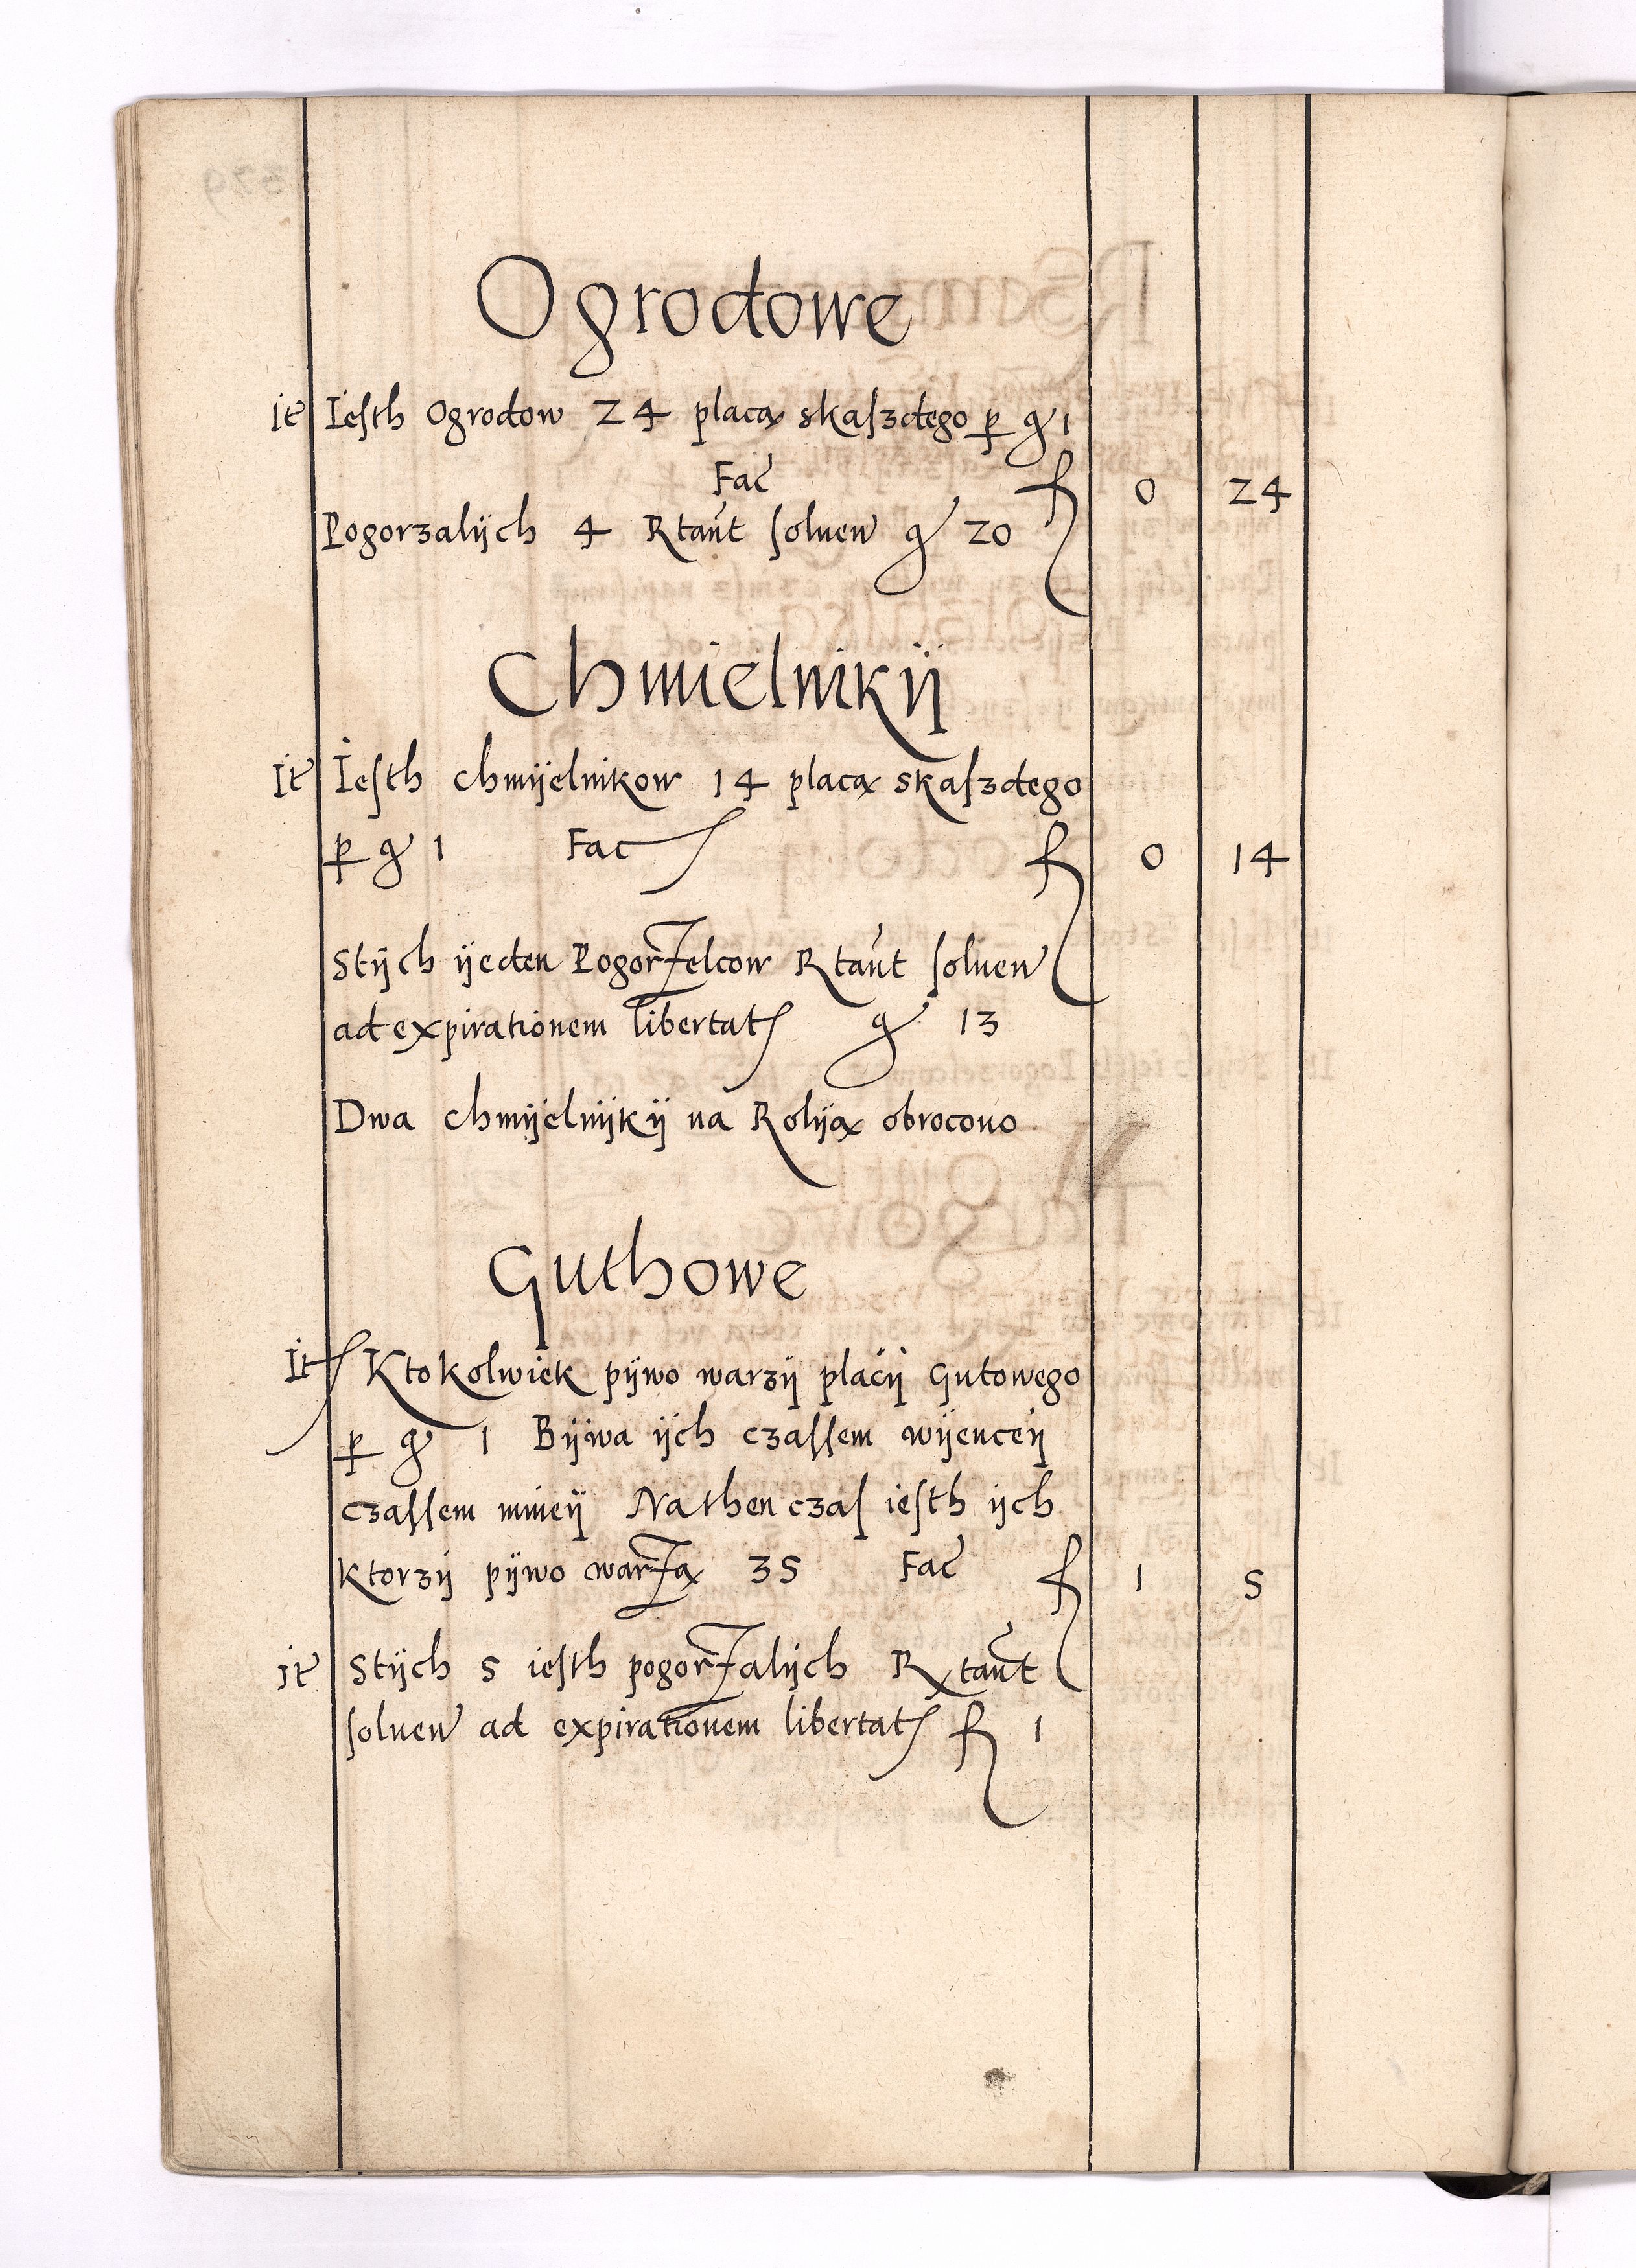 Ogrodowe
it Iesth Ogrodow 24 placą skaszdego p gr 1
Fac fl 0 24
Pogorzalÿch 4 Rtant soluen gr 20
Chmielnikÿ
It Iesth chmÿelnikow 14 placą skaszdego
p gr 1 Fac fl 0 14
Stÿch ÿeden Pogorzelcow Rtant soluen
ad expirationem libertatis gr 13
Dwa chmÿelnÿkÿ na Rolÿą obrocono
Guthowe
It Ktokolwiek pÿwo warzÿ placÿ Gutowego
p gr 1 Bÿwa ÿch czassem wÿenceÿ
czassem mnieÿ Na then czas iesth ÿch
Ktorzÿ pÿwo warzą 35 Fac fl 1 5
it Stÿch 5 iesth pogorzalÿch Rtant
soluen ad expirationem libertatis fl 1